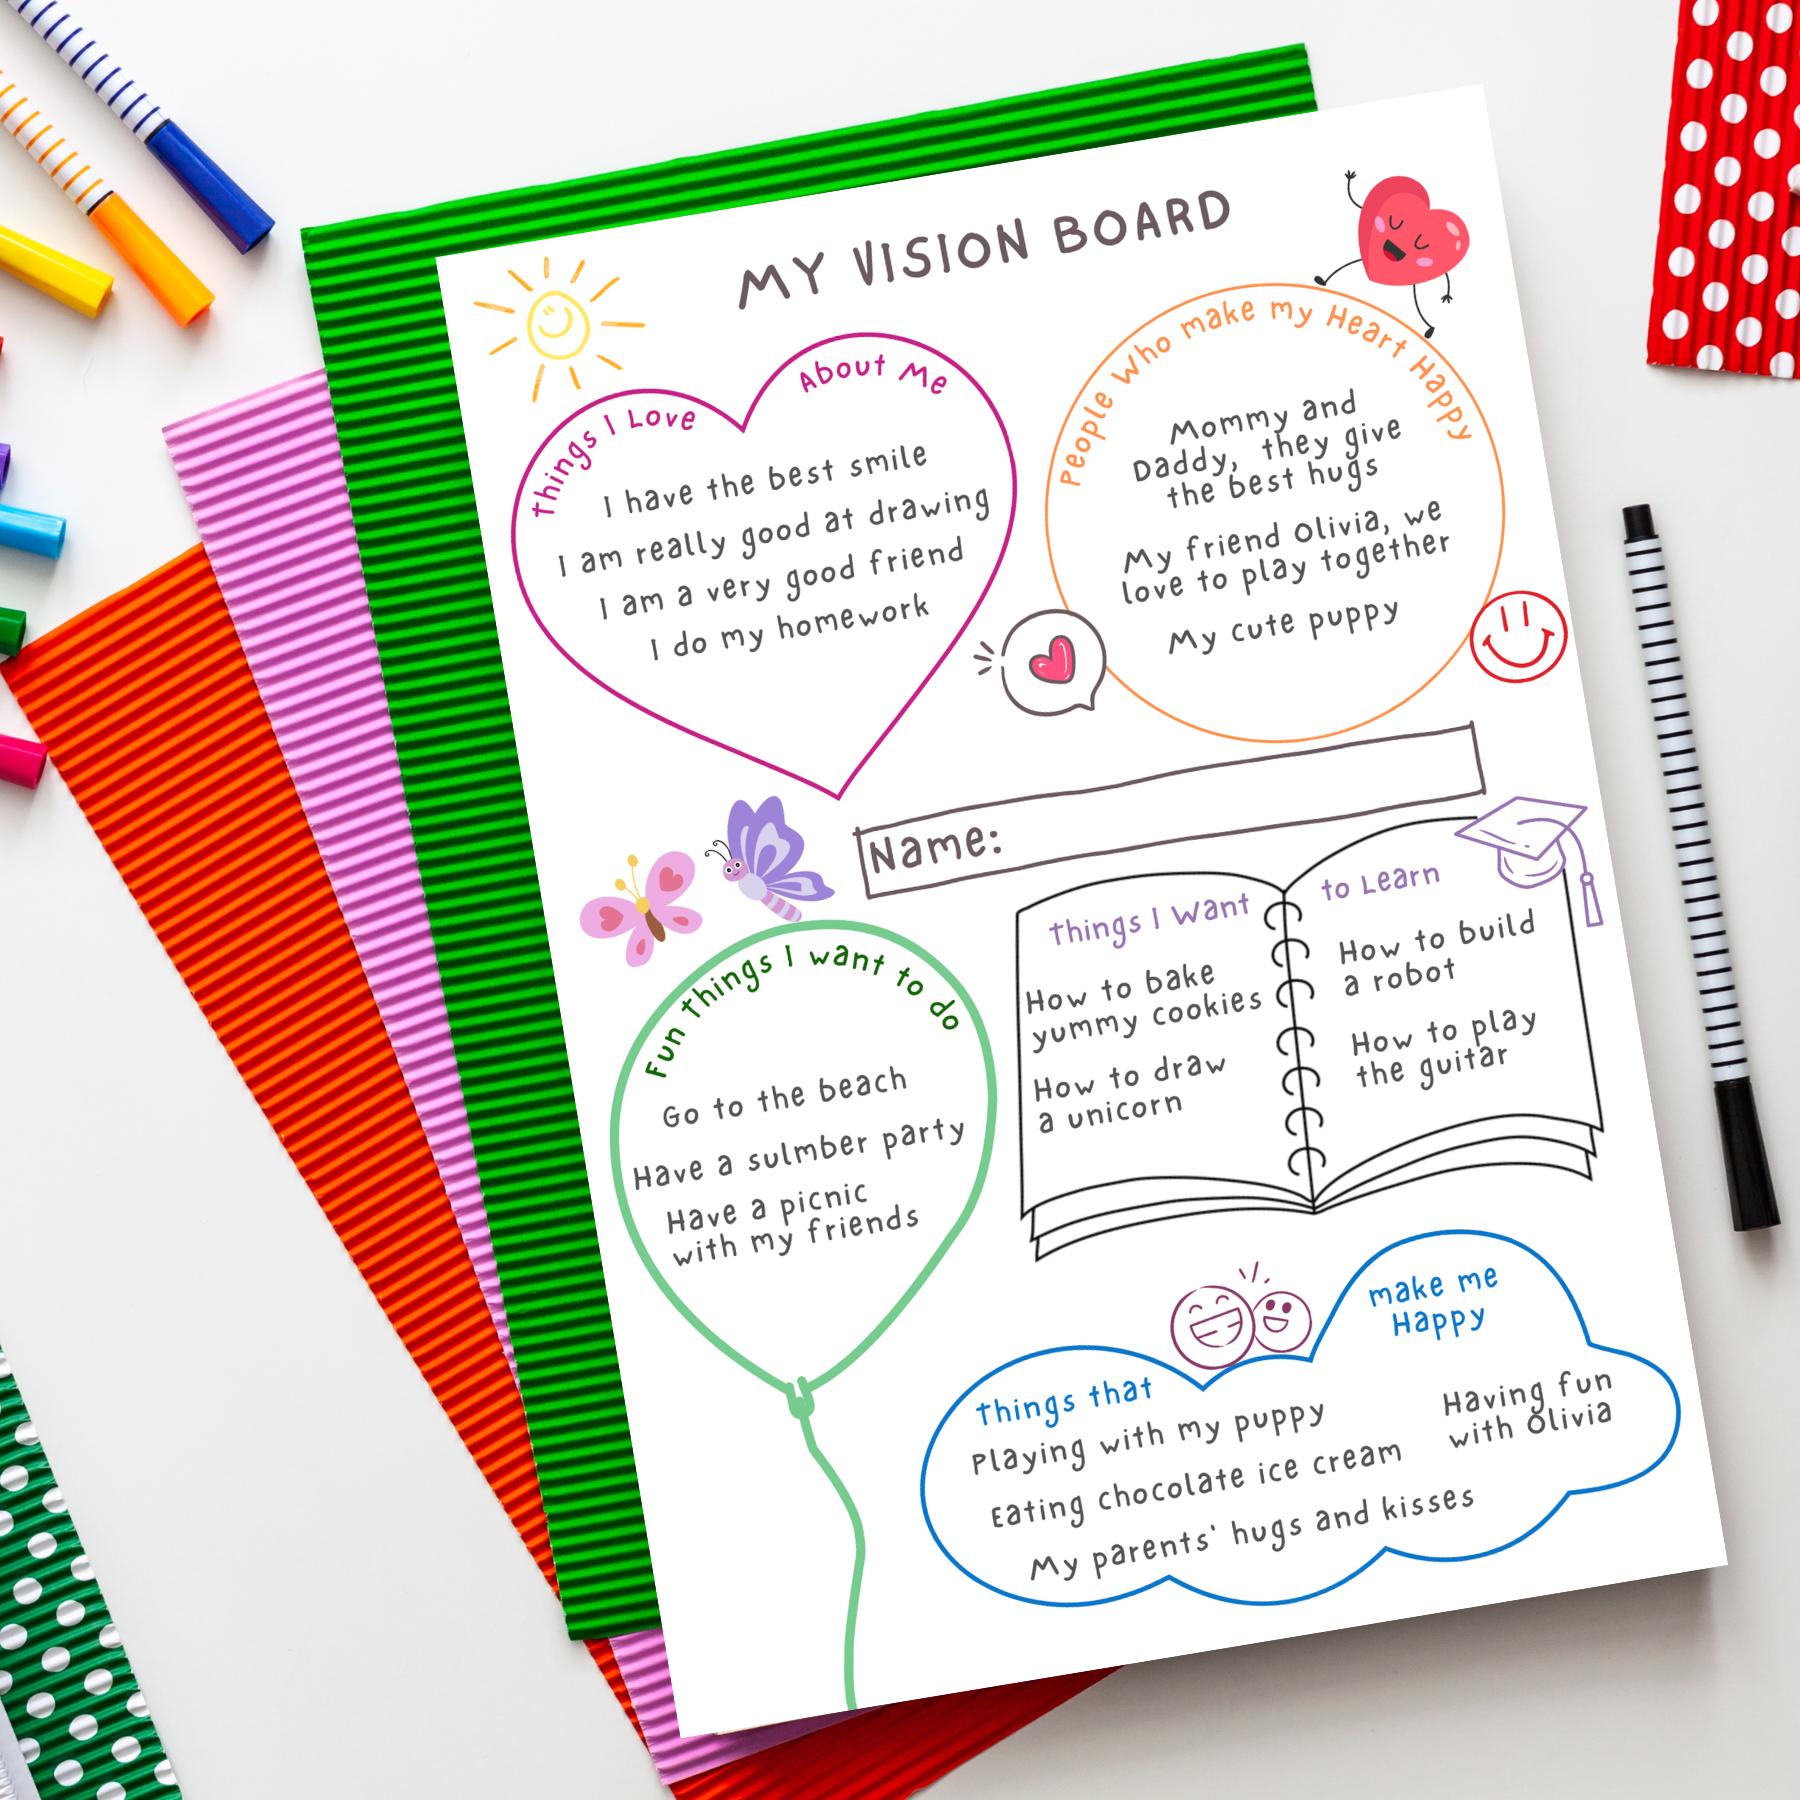 MY VISION BOARD
Things I Love About Me
I have the best smile
I am really good at drawing
I am a very good friend
I do my homework
People Who make my Heart Happy
Mommy and
Daddy, they give
the best hugs
My friend Olivia, we
love to play together
My cute puppy
Name:
Fun things I want to do
Go to the beach
Have a sulmber party
Have a picnic
with my friends
Things I Want to Learn
How to bake
yummy cookies
How to draw
a unicorn
How to build
a robot
How to play
the guitar
Things that make me
Happy
Playing with my puppy
Eating chocolate ice cream
My parents' hugs and kisses
Having fun
with Olivia